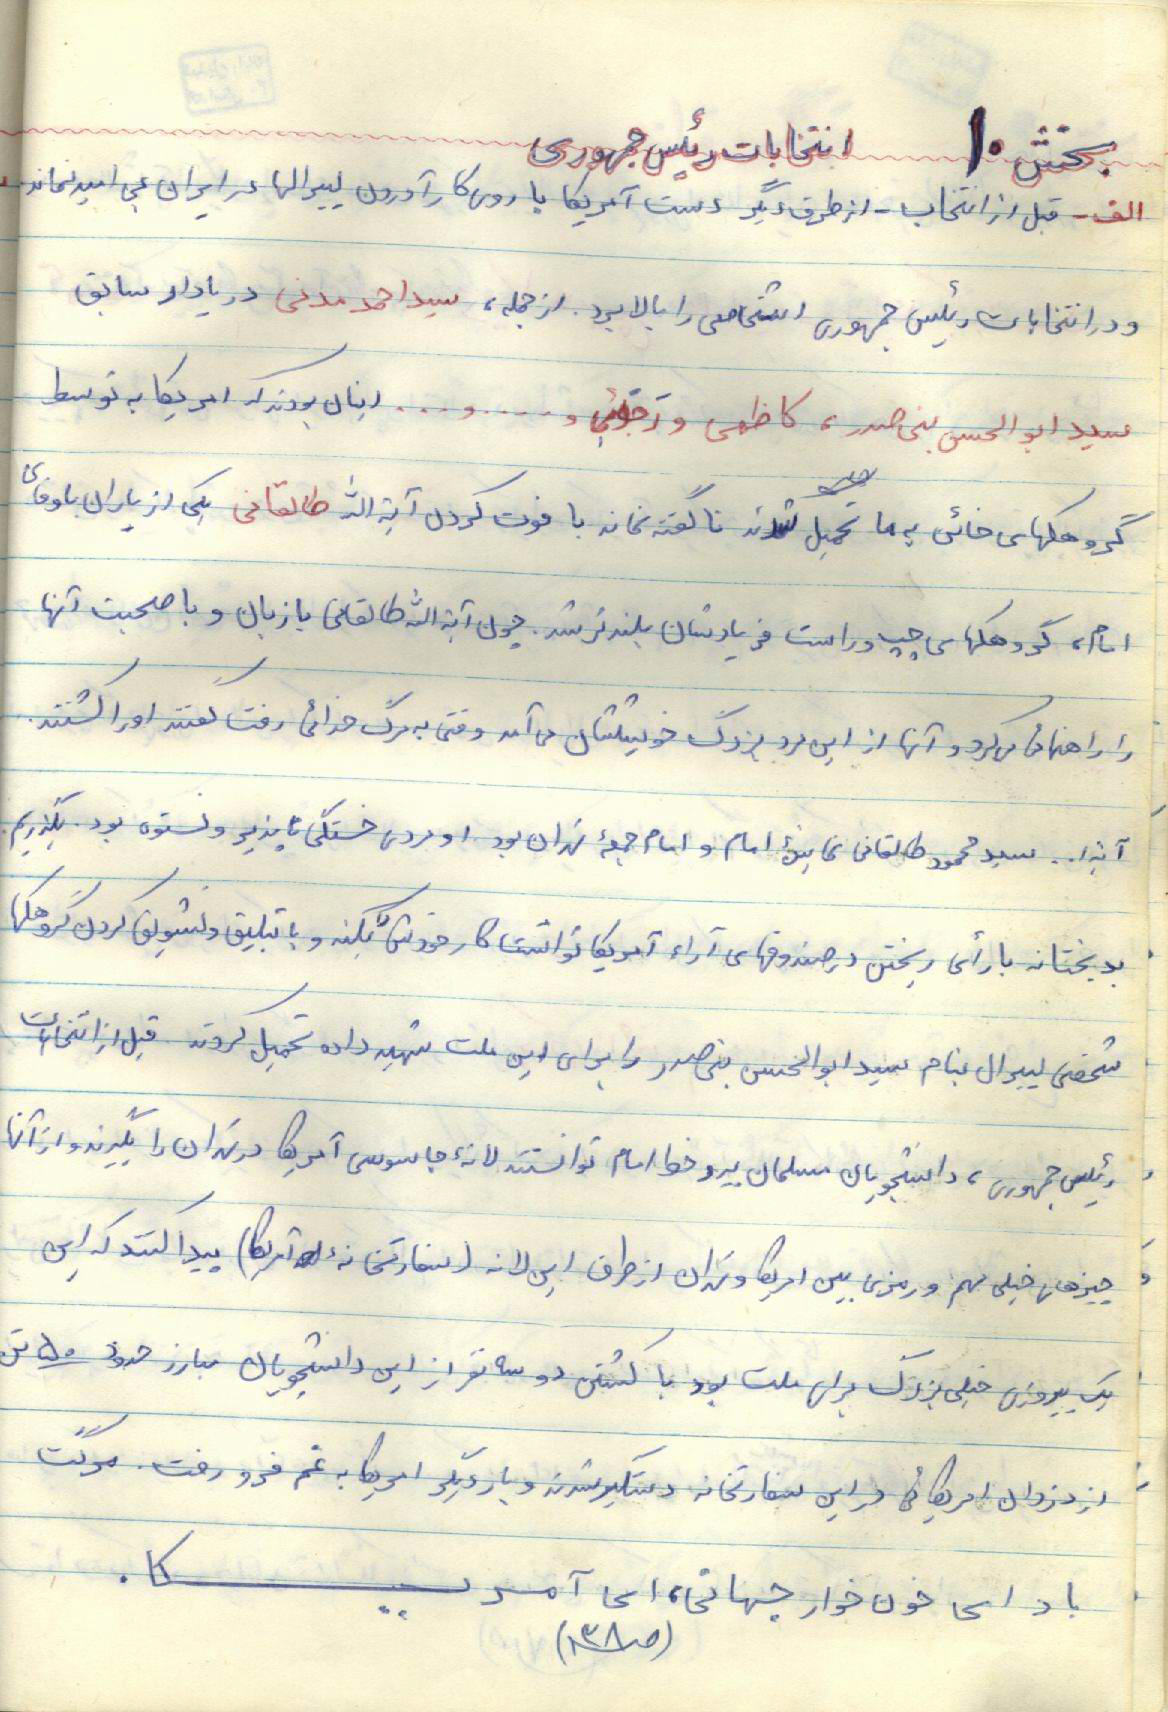 بخش ۱۰ انتخابات رئیس جمهوری
الف - قبل از انتخاب - از طرف دیگر دست آمریکا با روی کار آوردن لیبرالها در ایران بی امید نماند
و در انتخابات رئیس جمهوری اشخاصی را بالا برد. از جمله، سید احمد مدنی دریادار سابق
سید ابوالحسن بنی صدر، کاظمی و رجوی و ..... و .... اینان بودند که امریکا به توسط
گروهکهای خائن به ما تحمیل شدند ناگفته نماند با فوت کردن آیة الله طالقانی یکی از یاران باوفای
امام، گروهکهای چپ و راست فریادشان بلندتر شد. چون آیة الله طالقانی با زبان و با صحبت آنها
را راهنمائی میکرد و آنها از این مرد بزرگ خوششان می آمد وقتی به مرگ خدائی رفت گفتند او را کشتند.
آیة ا.. سید محمود طالقانی نمایندهٔ امام و امام جمعهٔ تهران بود او مردی خستگی ناپذیر و نستوه بود. بگذریم.
بدبختانه با رأی ریختن در صندوقهای آراء آمریکا توانست کار خودش را بکند و با تبلیق و تشویق کردن گروهکها
شخصی لیبرال بنام سید ابوالحسن بنی صدر را برای این ملت شهید داده تحمیل کردند قبل از انتخابات
رئیس جمهوری، دانشجویان مسلمان پیرو خط امام توانستند لانهٔ جاسوسی آمریکا در تهران را بگیرند و از آنها
چیزهای خیلی مهم و رمزی بین امریکا و تهران از طرف این لانه (سفارتخانهٔ آمریکا) پیدا کنند که این
یک پیروزی خیلی بزرگ برای ملت بود با کشتن دو سه نفر از این دانشجویان مبارز حدود ۵۰ تن
از مزدوران امریکائی در این سفارتخانه دستگیر شدند و بار دیگر امریکا به غم فرو رفت. مرگت
باد ای خون خوار جهانی، ای آمریکا.
(ص ۱۳۸)